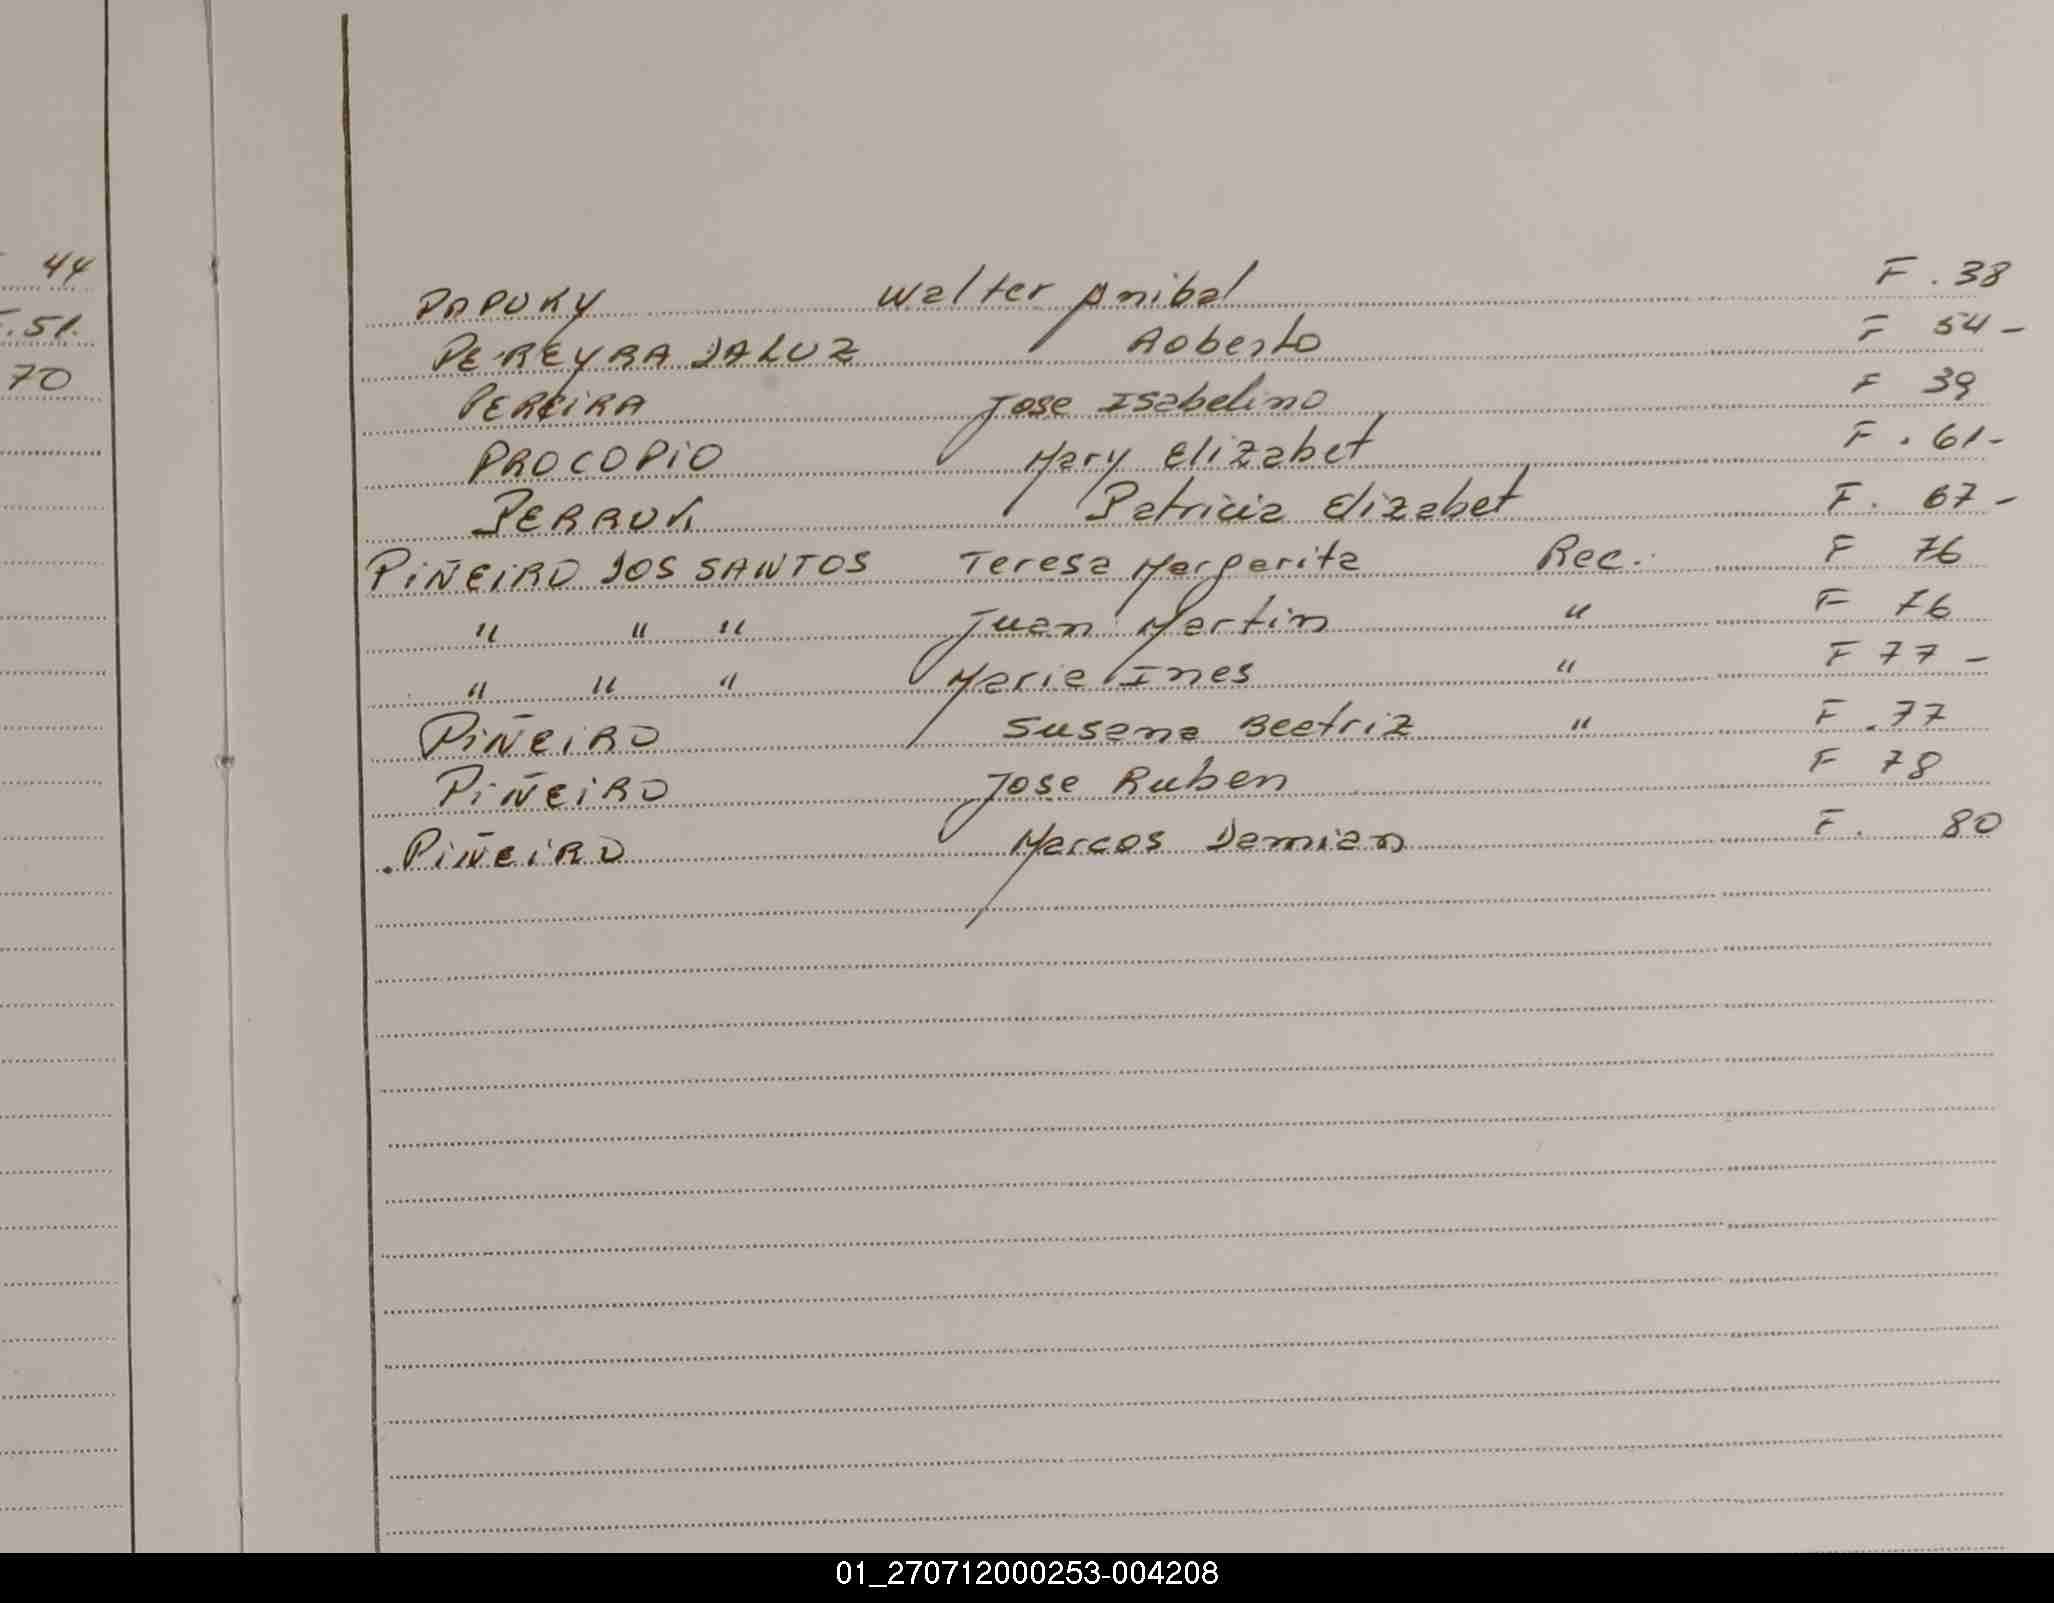 44
F.51.
70
PAPUKY Walter Anibal F. 38
PEREYRA DALUZ Roberto F 54-
PEREIRA Jose Isabelino F 39
PROCOPIO Mary Elizabet F. 61-
Patricia Elizabet F. 67-
PIÑEIRO DOS SANTOS Teresa Margarita Rec. F 76
" " " Juan Martin " F 76
" " " Maria Ines " F 77-
PIÑEIRO Susana Beatriz " F. 77
PIÑEIRO Jose Ruben F 78
.PIÑEIRO Marcos Damian F. 80
01_270712000253-004208